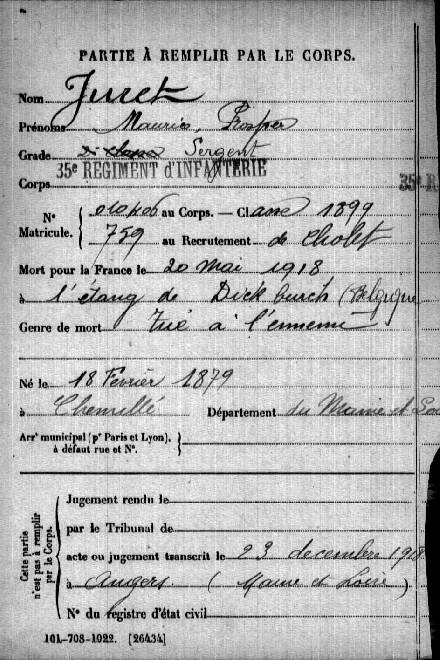 PARTIE À REMPLIR PAR LE CORPS.
Nom Juret
Prénoms Maurice, Prosper
Grade Sergent
35e REGIMENT d'INFANTERIE
35e R
Corps
N° Matricule. { 010406 au Corps. — Classe 1899
759 au Recrutement de Cholet
Mort pour la France le 20 Mai 1918
à l'étang de Dickbusch (Belgique
Genre de mort Tué à l'ennemi
Né le 18 Février 1879
à Chemillé Département du Maine et Loi
Arrt municipal (pr Paris et Lyon), à défaut rue et N°. }
Cette partie n'est pas à remplir par le Corps.
Jugement rendu le
par le Tribunal de
acte ou jugement transcrit le 23 decembre 1918
à Angers (Maine et Loire)
N° du registre d'état civil
101-708-1022. [26434]